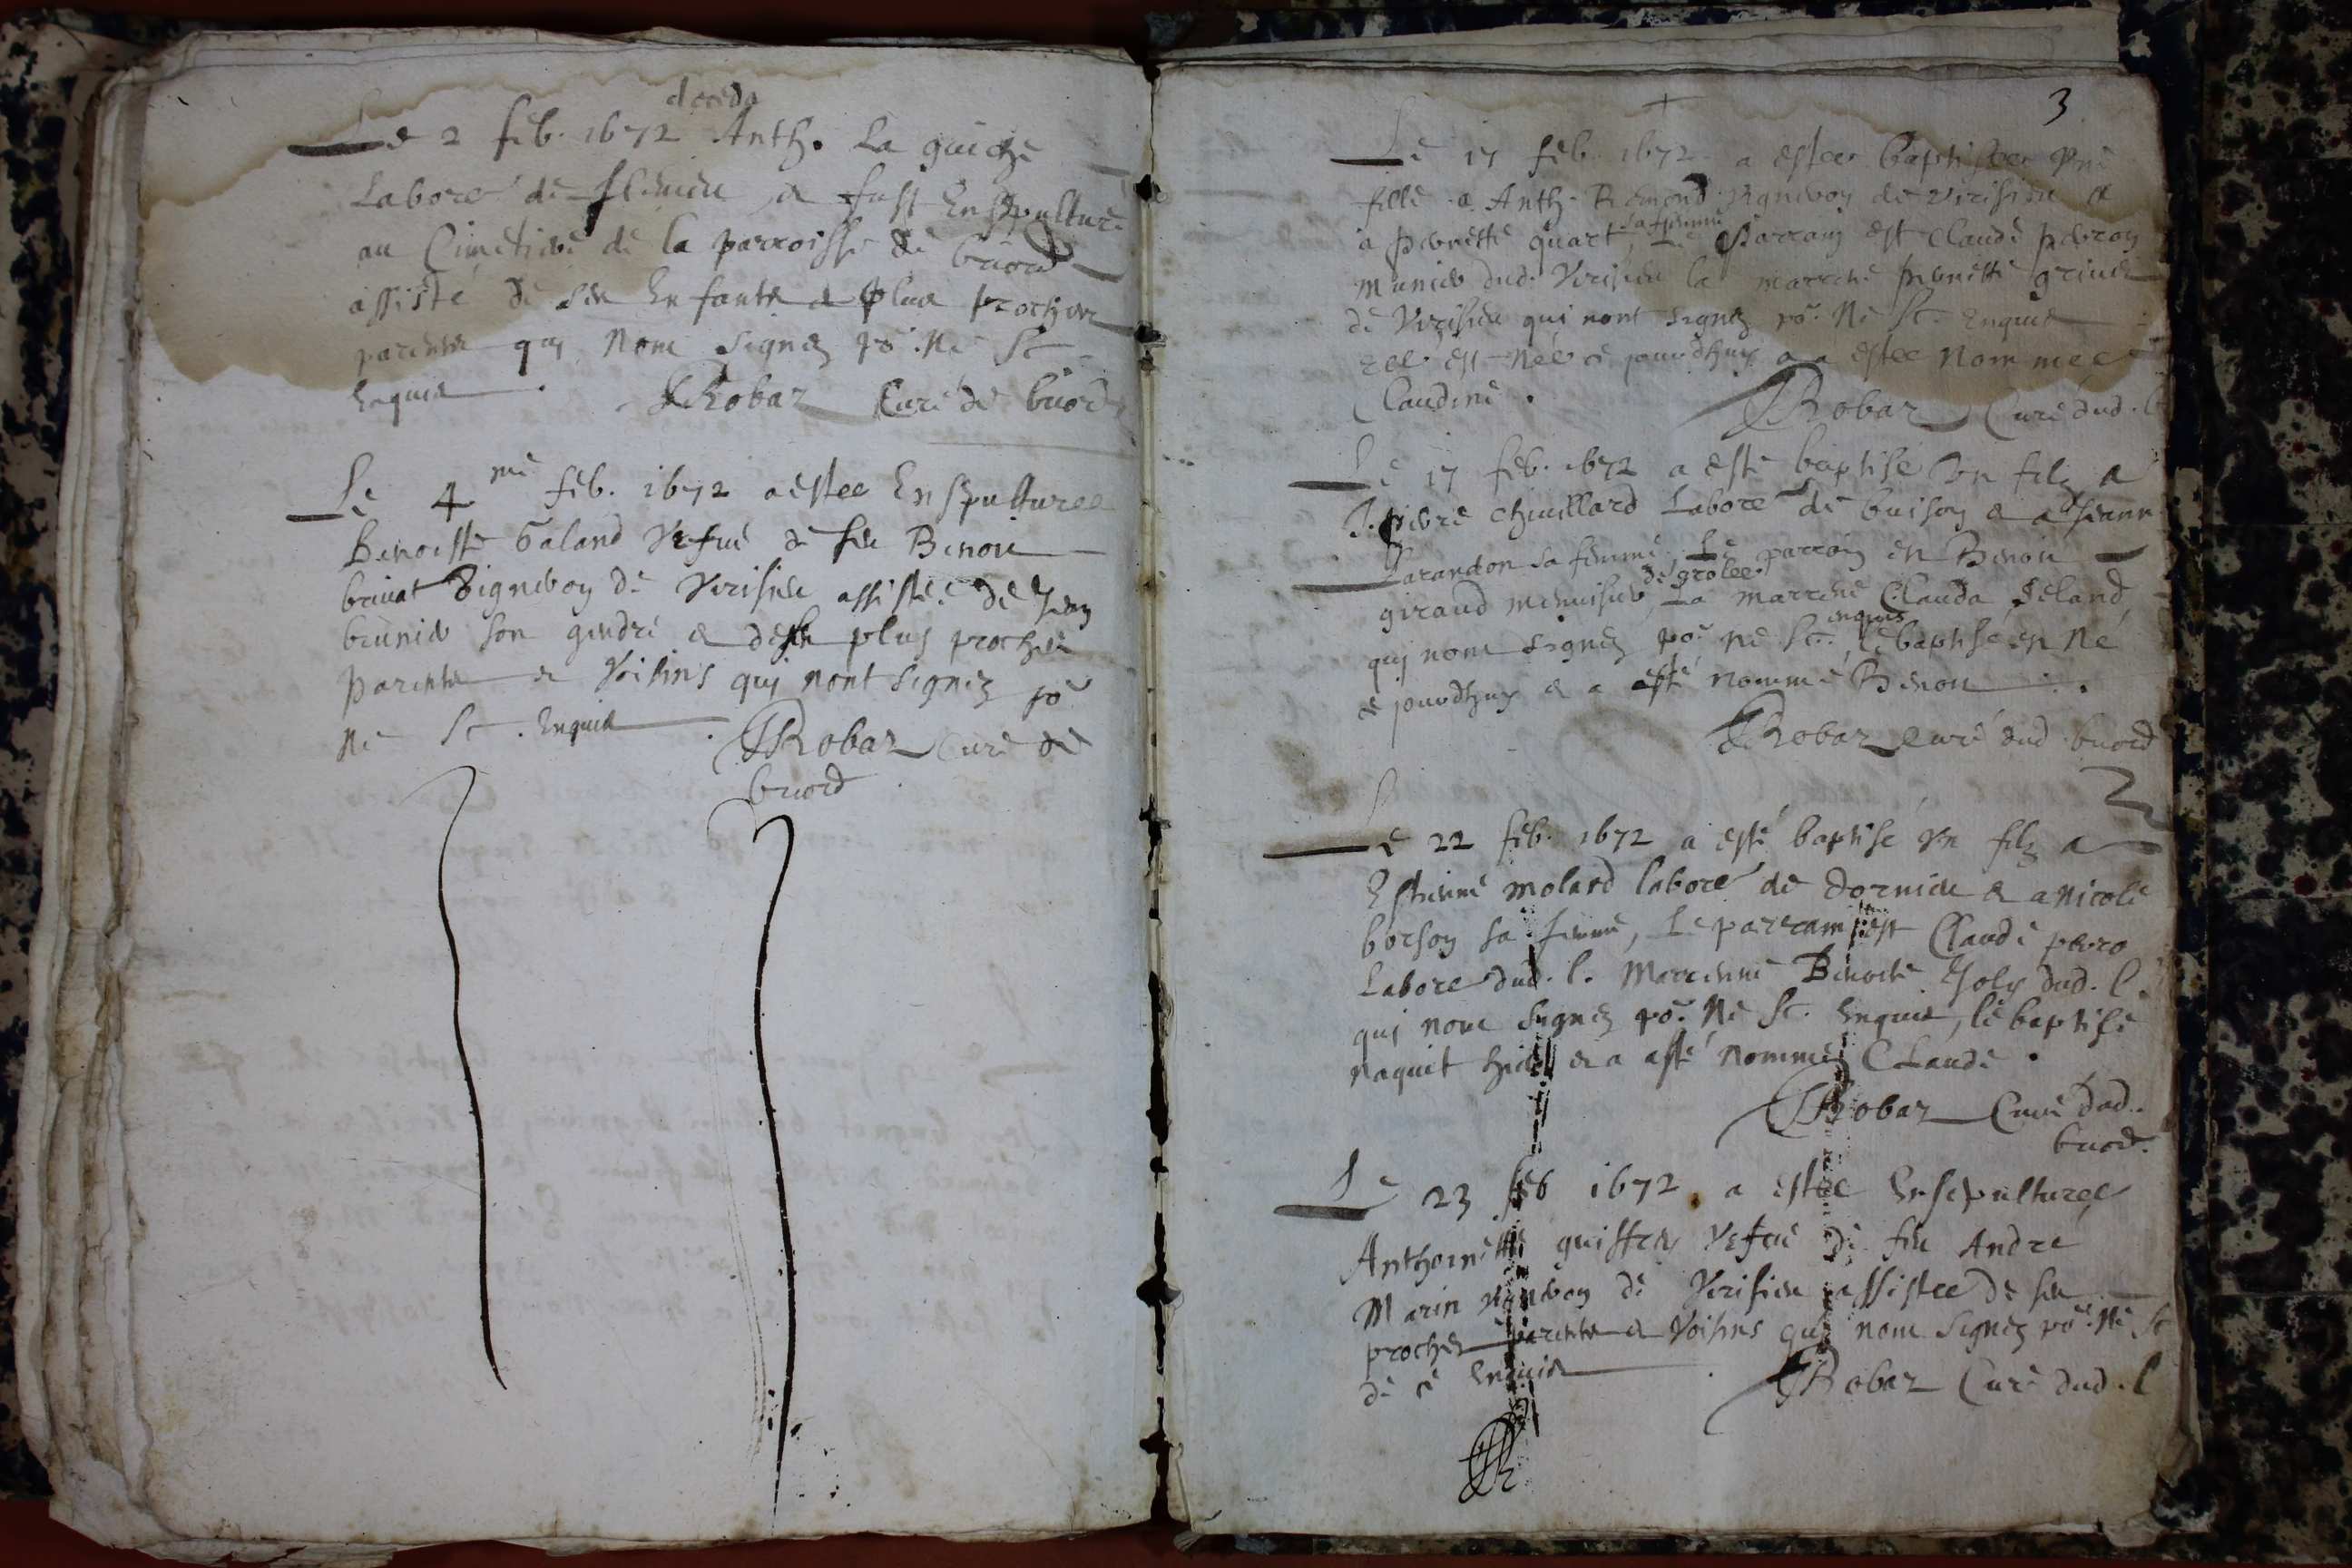 deceda
Le 2 feb. 1672 Anth. La guiche
Labore de & fust Ensepulturé
au Cimetiere de la parroisse de briord
assisté de ses Enfants & plus proches
parents quj nont signez po. ne sc.
Enquis. Robaz Curé de briord
Le 4me feb. 1672 a estee Ensepulturee
Benoiste Galand Vefue de feu Benoit
brivat Vigneron de Verisieu assistée de Jean
brunier son gendre & de ses plus proches
parents & Voisins quj nont signez po.
ne sc. Enquis. Robaz Curé de
briord
3
Le 17 feb. 1672 a estee baptisee Vne
fille a Anth. Remond Vigneron de Verisieu &
a pernette quart, sa femme Le parrain est claude perron
munier dud. Verisieu la marrene pernette
de Verisieu qui nont signez po. ne sc. Enquis
elle est née ce jourdhuy & a estee nommee
Claudine. Robaz Curé dud. l.
Le 17 feb. 1672 a esté baptisé Vn filz a
pierre chuillard Labore de buison & a Jeanne
Larandon sa femme. Le parrain est Benoit
giraud menuisier de grolee. La marrene Clauda Seland
quj nont signez po. ne sc. enquis le baptisé est né
ce jourdhuy & a esté nommé Benoit.
Robaz Curé dud. briord
Le 22 feb. 1672 a esté baptisé Vn filz a
Estienne molard labore de dornieu & a nicole
borson sa femme, Le parrain est Claude perro
Labore dud. l. Marrenne Benoite Joly dud. l.
quj nont signez po. ne sc. Enquis, le baptisé
naquit hier & a esté nommé CLaude.
Robaz Curé dud.
briord.
Le 23 feb 1672 a estee Ensepulturee
Anthoinette quiffrey Vefue de feu André
Marin Vigneron de Verisieu assistee de ses
proches parents & Voisins quj nont signez po. ne sc
de ce Enquis. Robaz Curé dud. l